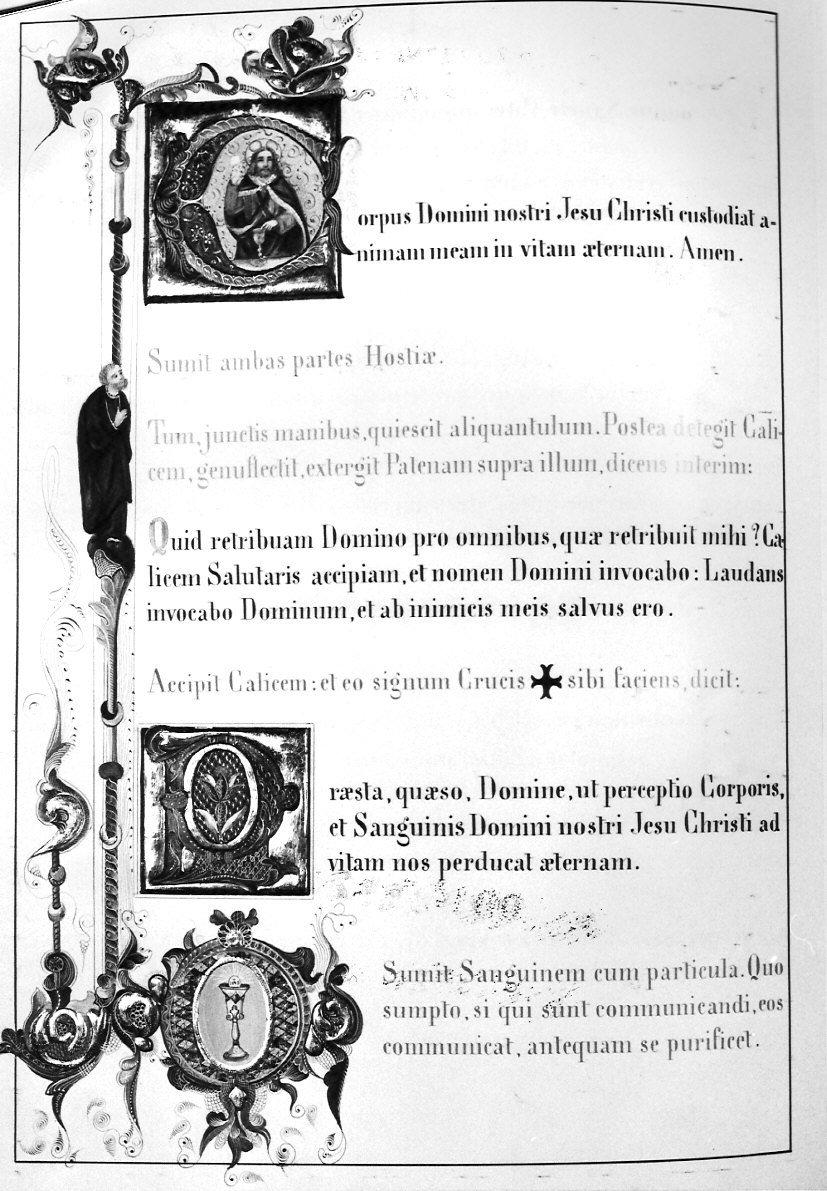 Corpus Domini nostri Jesu Christi custodiat a-
nimam meam in vitam æternam. Amen.
Sumit ambas partes Hostiæ.
Tum, junctis manibus, quiescit aliquantulum. Postea detegit Cali-
cem, genuflectit, extergit Patenam supra illum, dicens interim:
Quid retribuam Domino pro omnibus, quæ retribuit mihi? Ca-
licem Salutaris accipiam, et nomen Domini invocabo: Laudans
invocabo Dominum, et ab inimicis meis salvus ero.
Accipit Calicem: et eo signum Crucis ✠ sibi faciens, dicit:
Præsta, quæso, Domine, ut perceptio Corporis,
et Sanguinis Domini nostri Jesu Christi ad
vitam nos perducat æternam.
Sumit Sanguinem cum particula. Quo
sumpto, si qui sunt communicandi, eos
communicat, antequam se purificet.